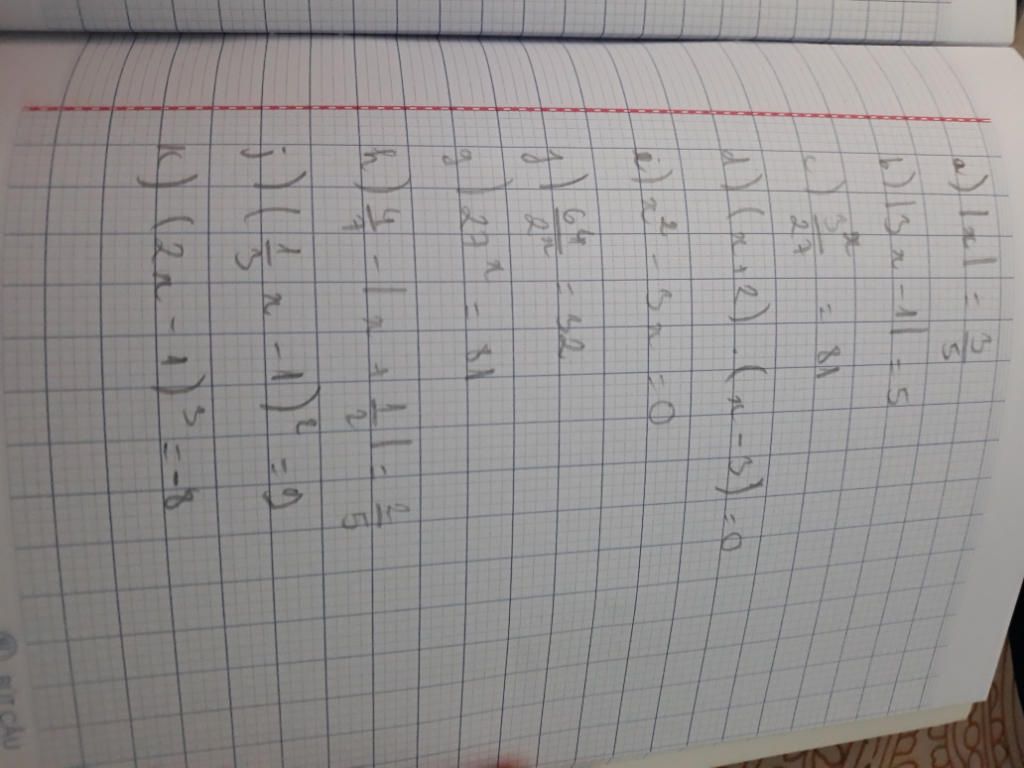 a) |x| = 3/5
b) |3x - 1| = 5
c) 3^x/27 = 81
d) (x + 2) . (x - 3) = 0
e) x² - 3x = 0
f) 64/2^x = 32
g) 27^x = 81
h) 4/7 - |x + 1/2| = 2/5
j) (1/3 x - 1)² = 9
k) (2x - 1)³ = -8